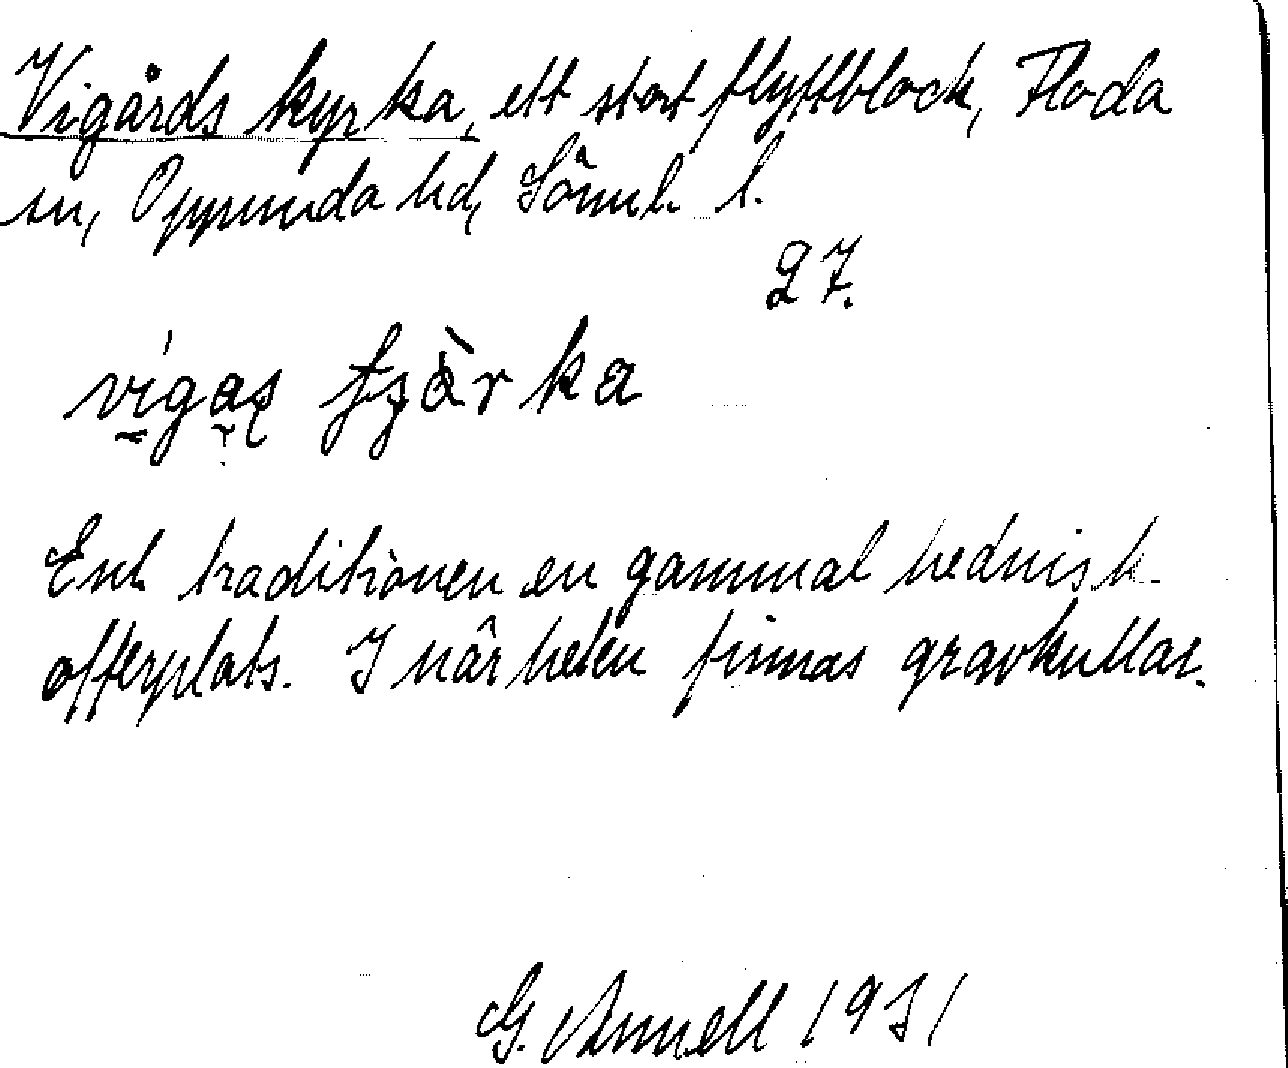 Vigårds kyrka, ett stort flyttblock, Floda
sn, Oppunda hd, Söml. l.
27.
vigas tjärka
Enl. traditionen en gammal hednisk
offerplats. I närheten finnas gravkullar.
G. Annell 1931